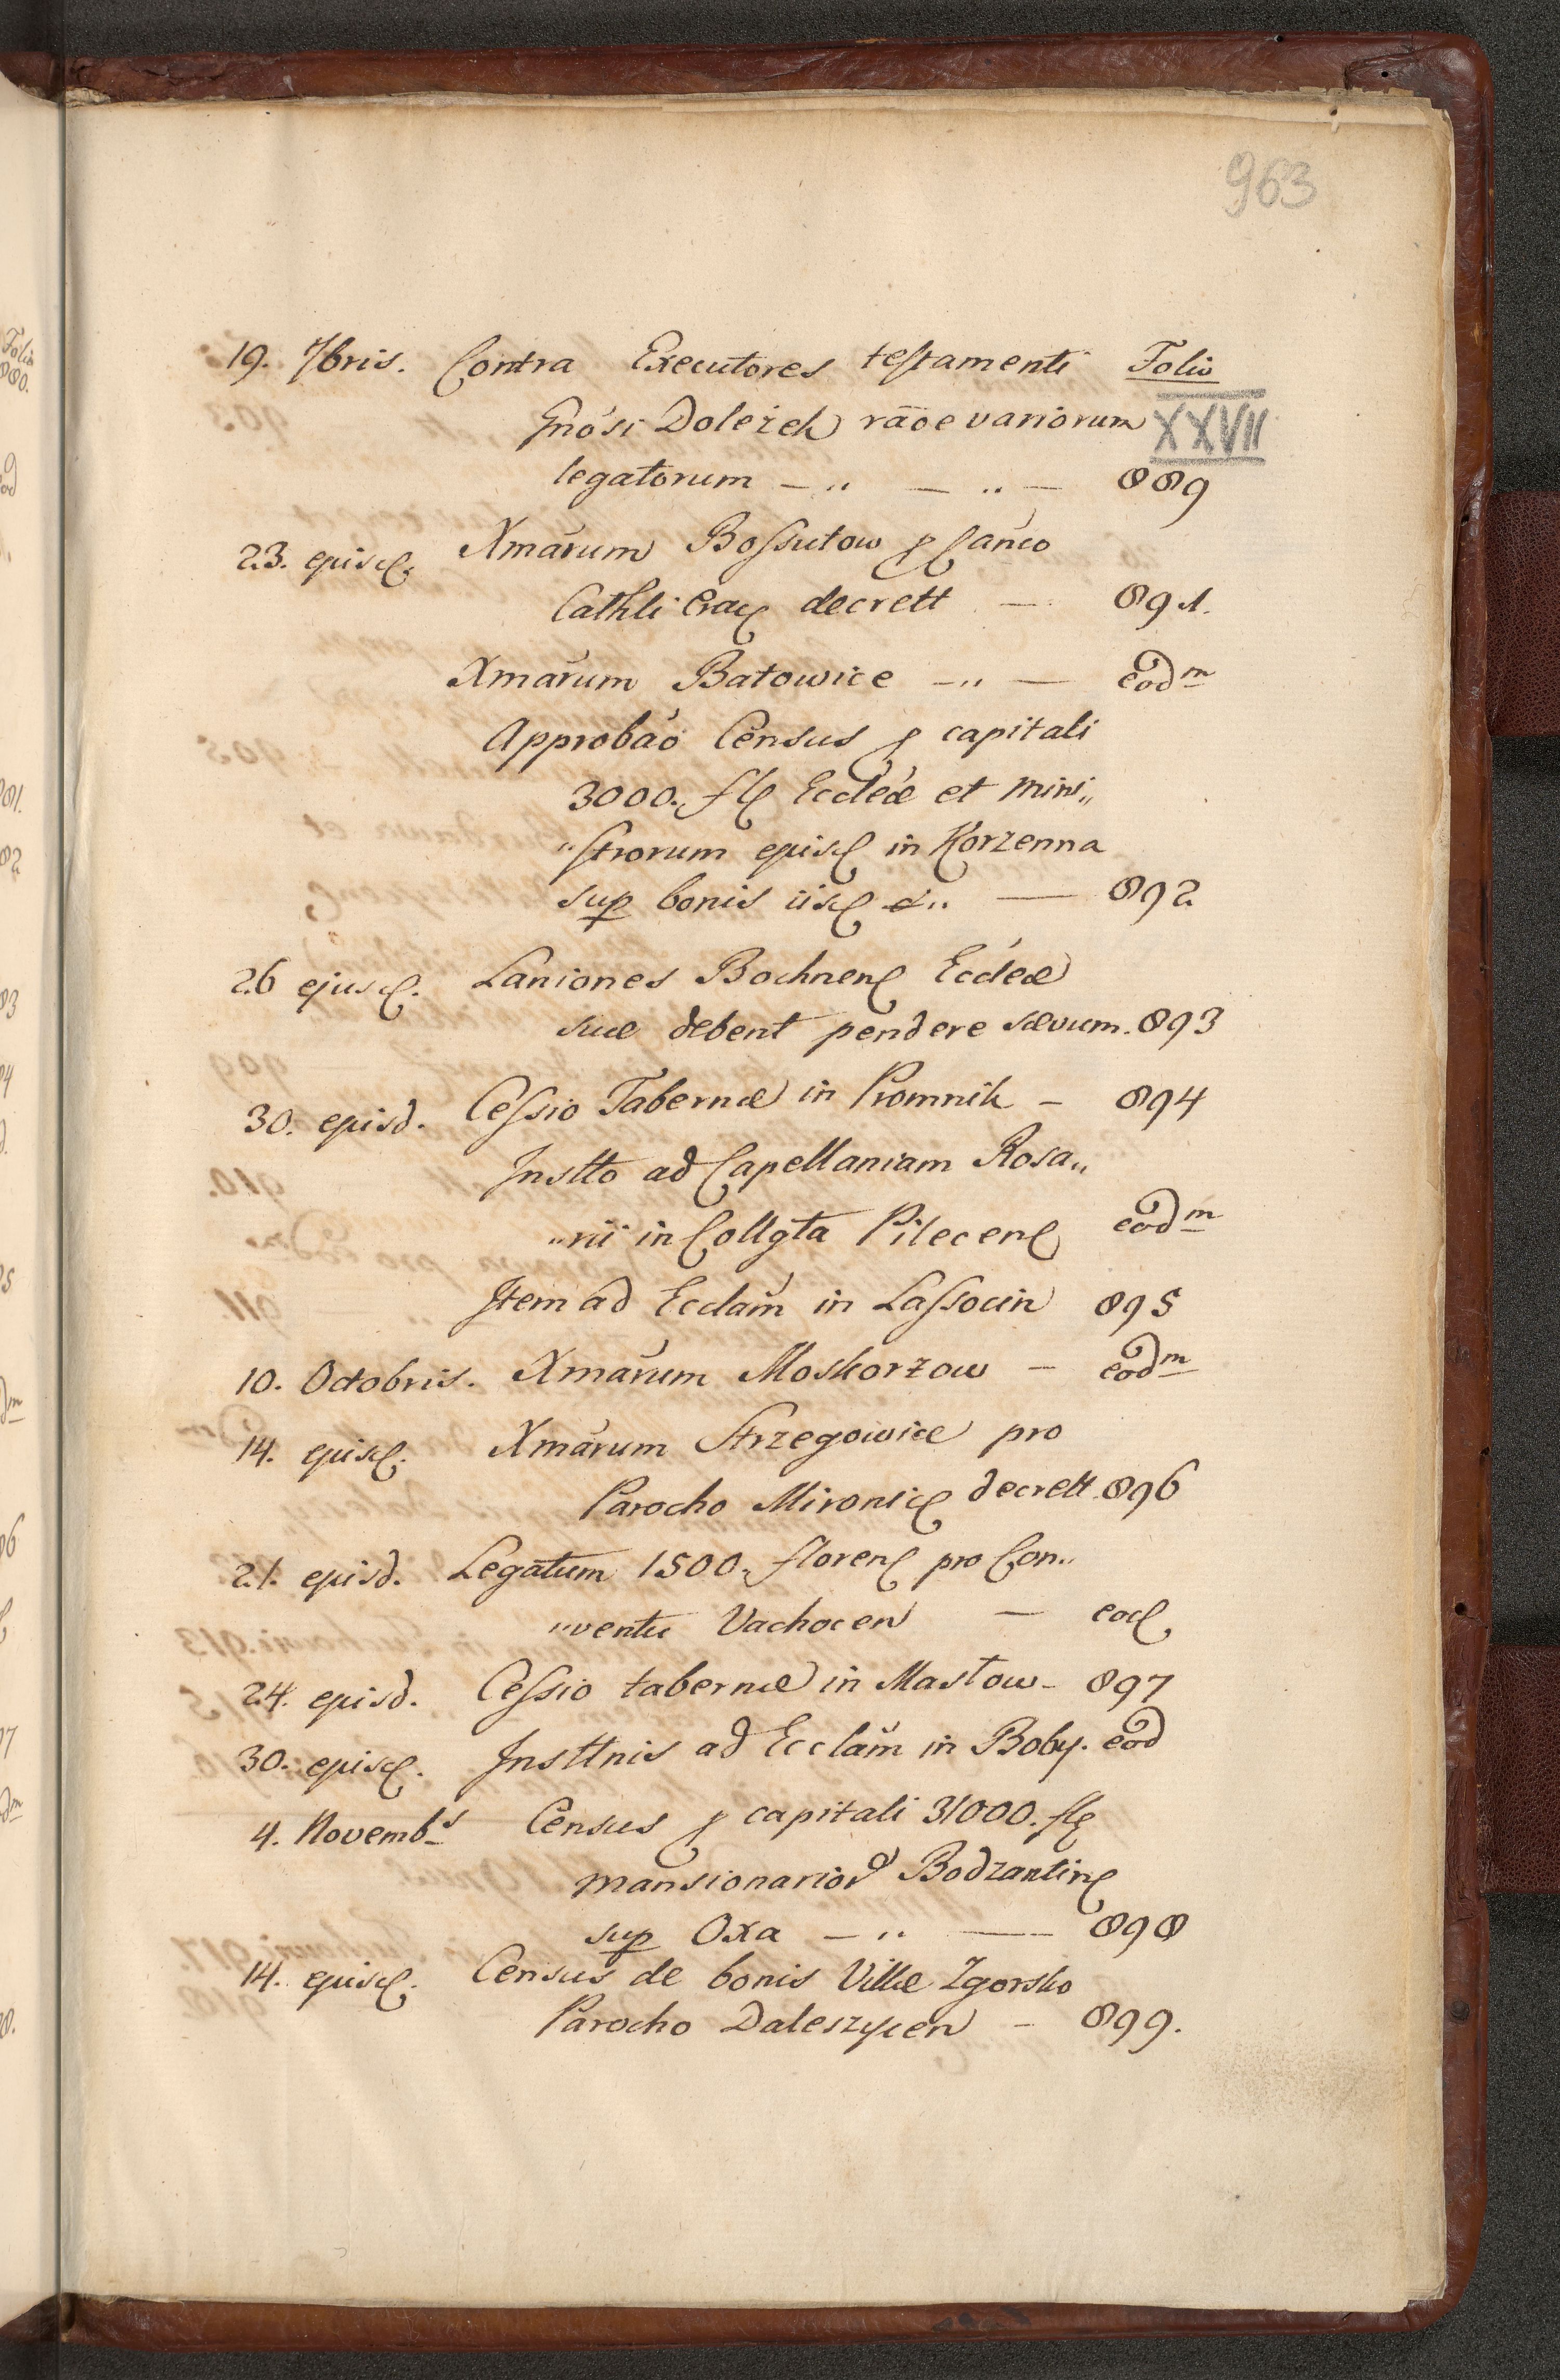 963
19. 7bris. Contra Executores testamenti Folio
Gnosi Doleżek rāoe variorum XXVII
legatorum — „ — „ — 889
23. ejusd. Xmarum Bossutow p Canco
Cathli Crac decrett — 891.
Xmarum Batowice — „ — eodm
Approbao Census p capitali
3000. fl Eccleæ et mini„
„strorum ejusd in Korzenna
sup bonis iisd — 892
26 ejusd. Laniones Bochnen Eccleæ
suæ debent pendere sævum. 893
30. ejusd. Cessio Tabernæ in Promnik — 894
Instto ad Capellaniam Rosa„
„rii in Collgta Pilecen eodm
Item ad Ecclam in Lassocin 895
10. Octobris. Xmarum Moskorzow — eodm
14. ejusd. Xmarum Strzegowice pro
Parocho Mironic decrett. 896
21. ejusd. Legatum 1500. floren pro Con„
„ventu Vachocen — eod
24. ejusd. Cessio tabernæ in Mastow — 897
30. ejusd. Insttnis ad Ecclam in Boby. eod
4. Novembs Census p capitali 31000. fl
mansionarior Bodzantin
sup Oxa — „ — 898
14. ejusd. Census de bonis Villæ Zgorsko
Parocho Daleszycen — 899.